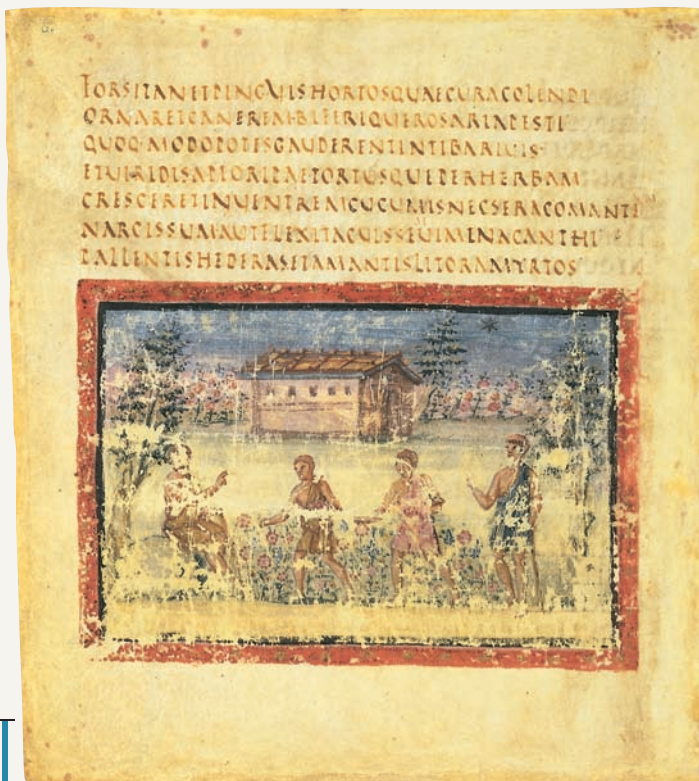 FORSITANETPINGVISHORTOSQVAECVRACOLENDI
ORNARETCANEREMBIFERIQVEROSARIAPESTI
QVOQ·MODOPOTISGAVDERENTINTIBARIVIS·
ETVIRIDISAPIORIPAETORTVSQVEPERHERBAM
CRESCERETINVENTREMCVCVMISNECSERACOMANTE
NARCISSVMAVTFLEXITACVISSEVIMENACANTHI
PALLENTISHEDERASETAMANTISLITORAMYRTOS